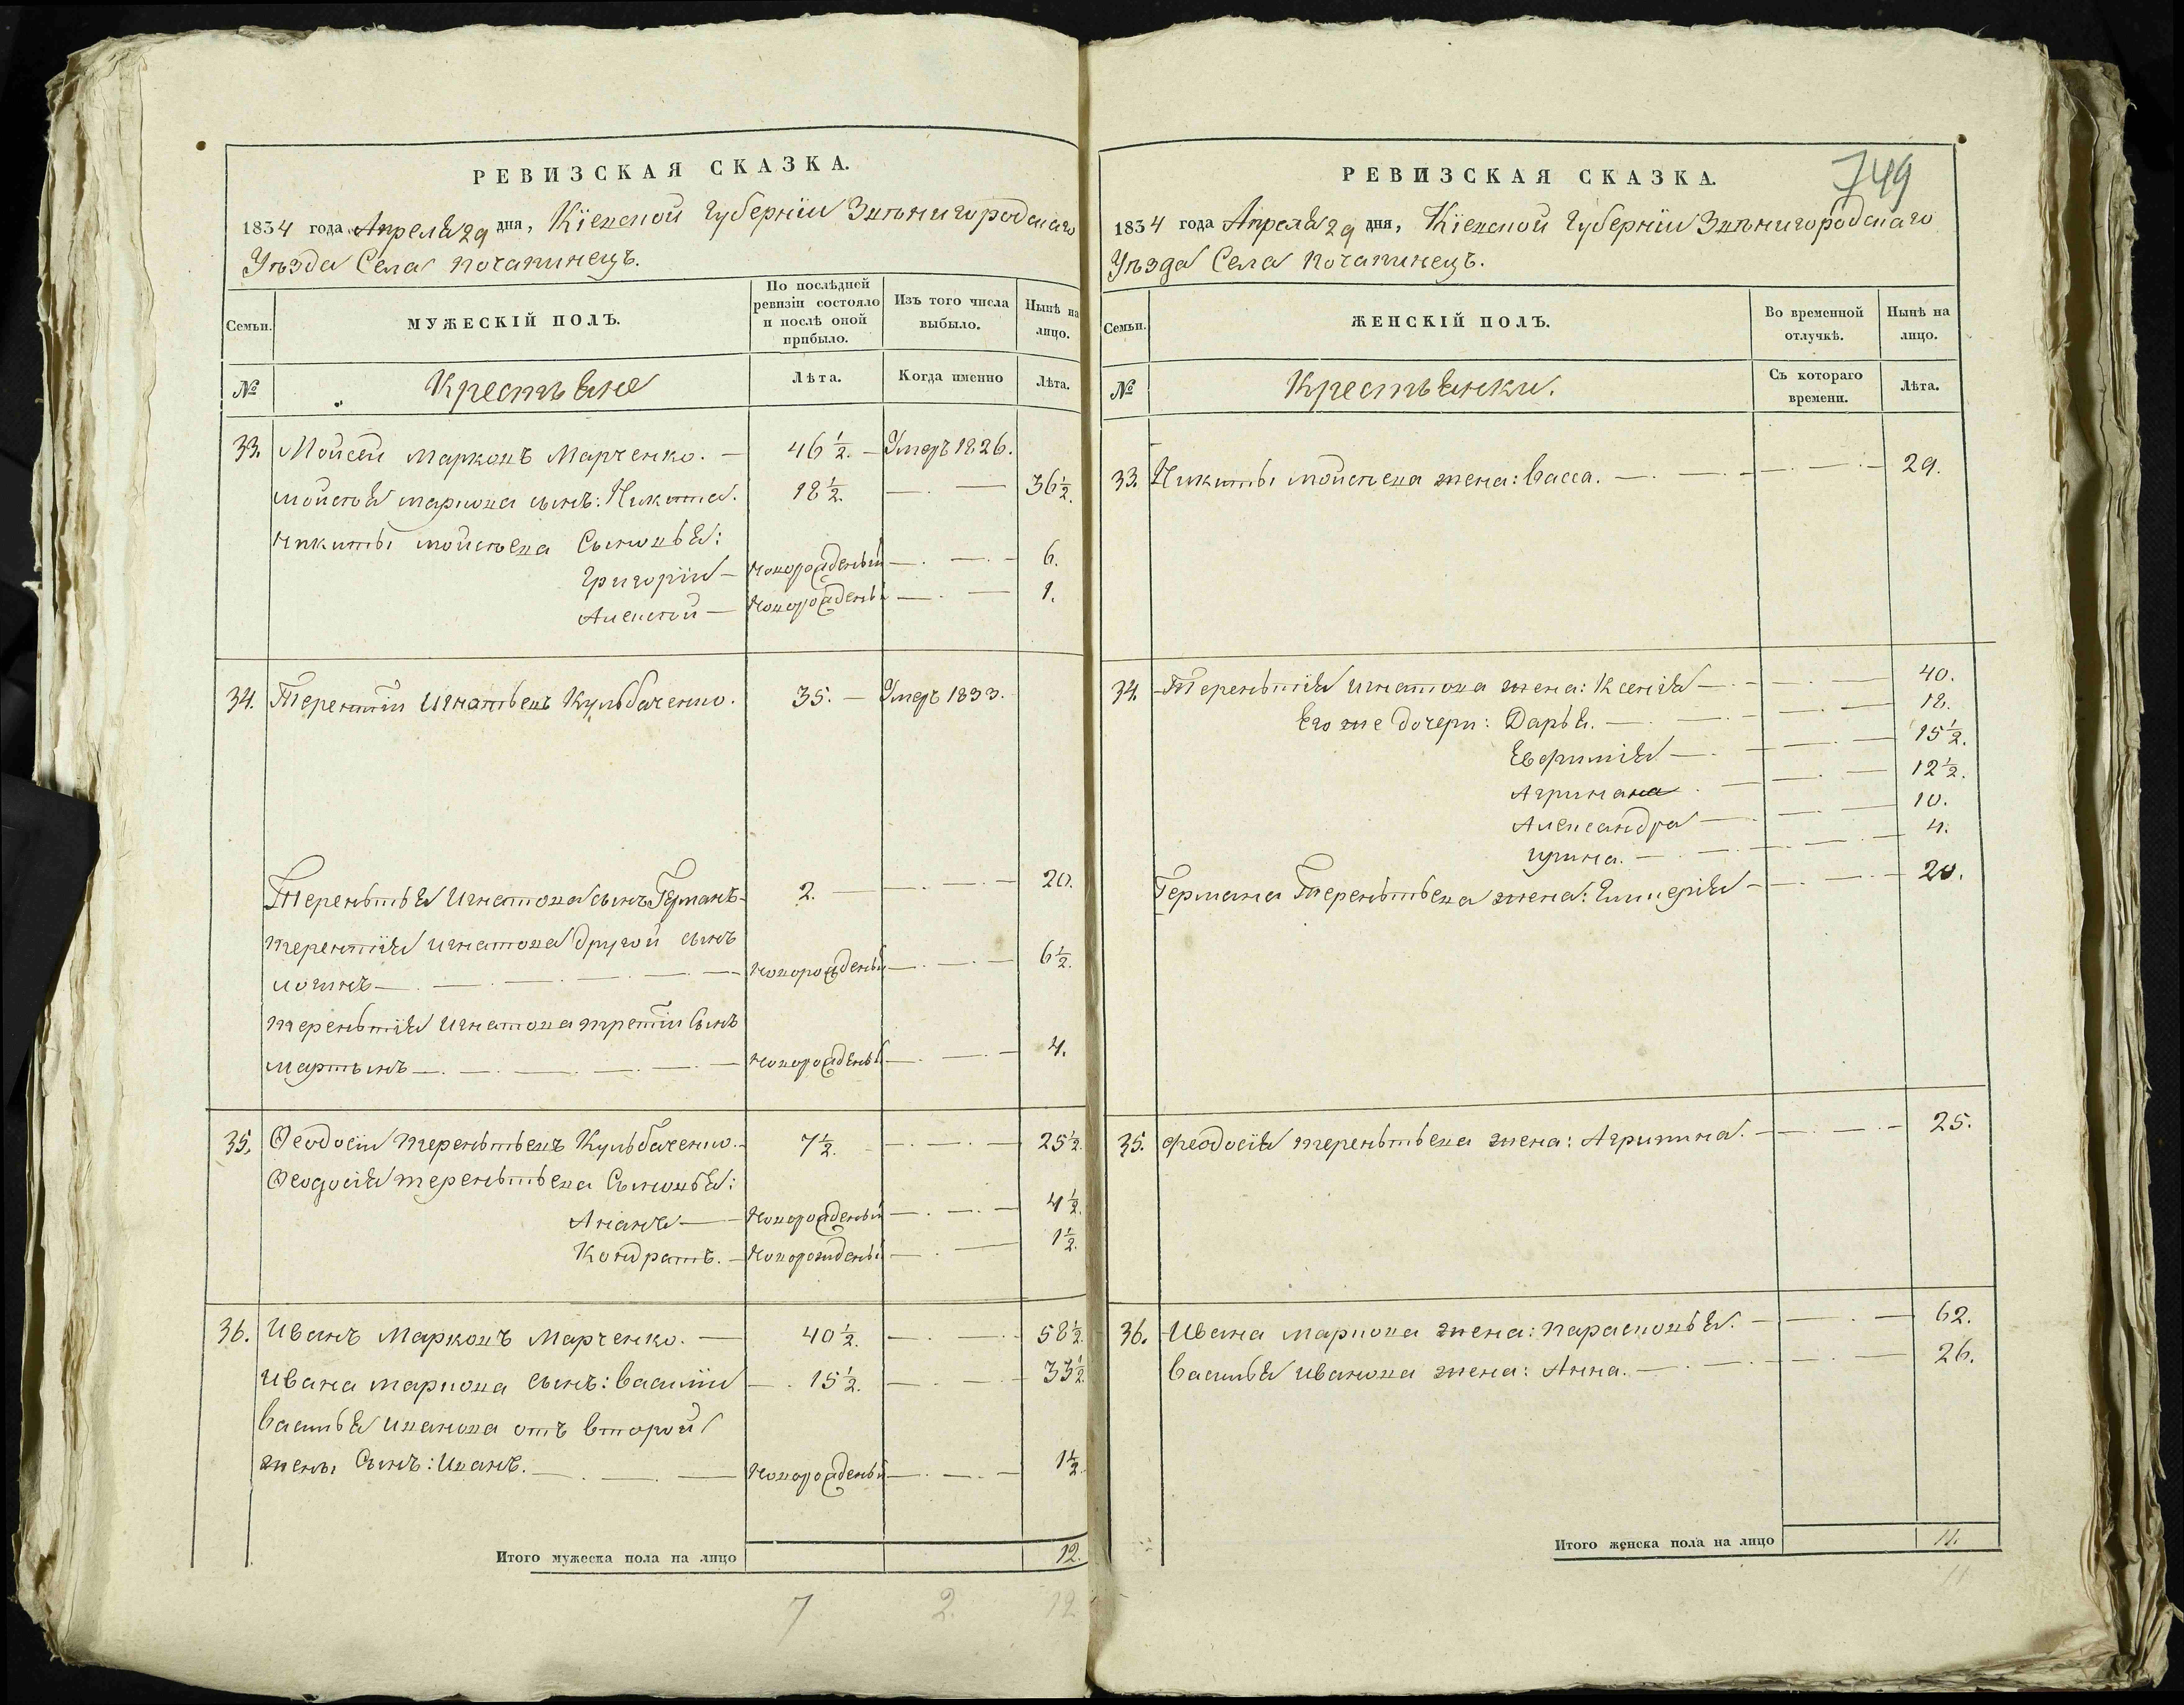 РЕВИЗСКАЯ СКАЗКА.
1834 года Апреля 29 дня, Кіевской Губерніи Звѣнигородскаго
Уѣзда Села Почапинецъ.
Семьи.
МУЖЕСКІЙ ПОЛЪ.
По послѣдней ревизіи состояло и послѣ оной прибыло.
Изъ того числа выбыло.
Нынѣ на лицо.
№
Крестьяне
Лѣта.
Когда именно
Лѣта.
33. Мойсей Марковъ Марченко. — 46 1/2. — Умеръ 1826.
Мойсѣя Маркова сынъ: Никита. 18 1/2. — 36 1/2.
Никиты Мойсѣева Сыновья:
Григорій — новорожденый — 6.
Алексѣй — новорожденый — 1.
34. Терентій Игнатьевъ Кульбаченко. 35. — Умеръ 1833.
Терентья Игнатова сынъ Германъ 2. — 20.
Терентія Игнатова другой сынъ
Логинъ — новорожденый — 6 1/2.
Терентія Игнатова третій сынъ
Мартынъ — новорожденый — 4.
35. Ѳеодосій Терентьевъ Кульбаченко. 7 1/2. — 25 1/2.
Ѳеодосія Терентьева Сыновья:
Ананъ — новорожденый — 4 1/2.
Кондратъ. — новорожденый — 1 1/2.
36. Иванъ Марковъ Марченко. — 40 1/2. — 58 1/2.
Ивана Маркова сынъ: Василій — 15 1/2. — 33 1/2.
Василья Иванова отъ второй
жены Сынъ: Иванъ. — новорожденый — 1 1/2.
Итого мужеска пола на лицо 12.
7 2. 12
749
РЕВИЗСКАЯ СКАЗКА.
1834 года Апреля 29 дня, Кіевской Губерніи Звѣнигородскаго
Уѣзда Села Почапинецъ.
Семьи.
ЖЕНСКІЙ ПОЛЪ.
Во временной отлучкѣ.
Нынѣ на лицо.
№
Крестьянки.
Съ котораго времени.
Лѣта.
33. Никиты Мойсѣева жена: Васса. — 29.
34. Терентія Игнатова жена: Ксенія — 40.
Его же дочери: Дарья. — 18.
Евфимія — 15 1/2.
— 12 1/2.
Александра — 10.
Ирина. — 4.
Германа Терентьева жена: Гликерія — 20.
35. Феодосія Терентьева жена: Агрипина. — 25.
36. Ивана Маркова жена: Парасковья. — 62.
Василья Иванова жена: Анна. — 26.
Итого женска пола на лицо 11.
11